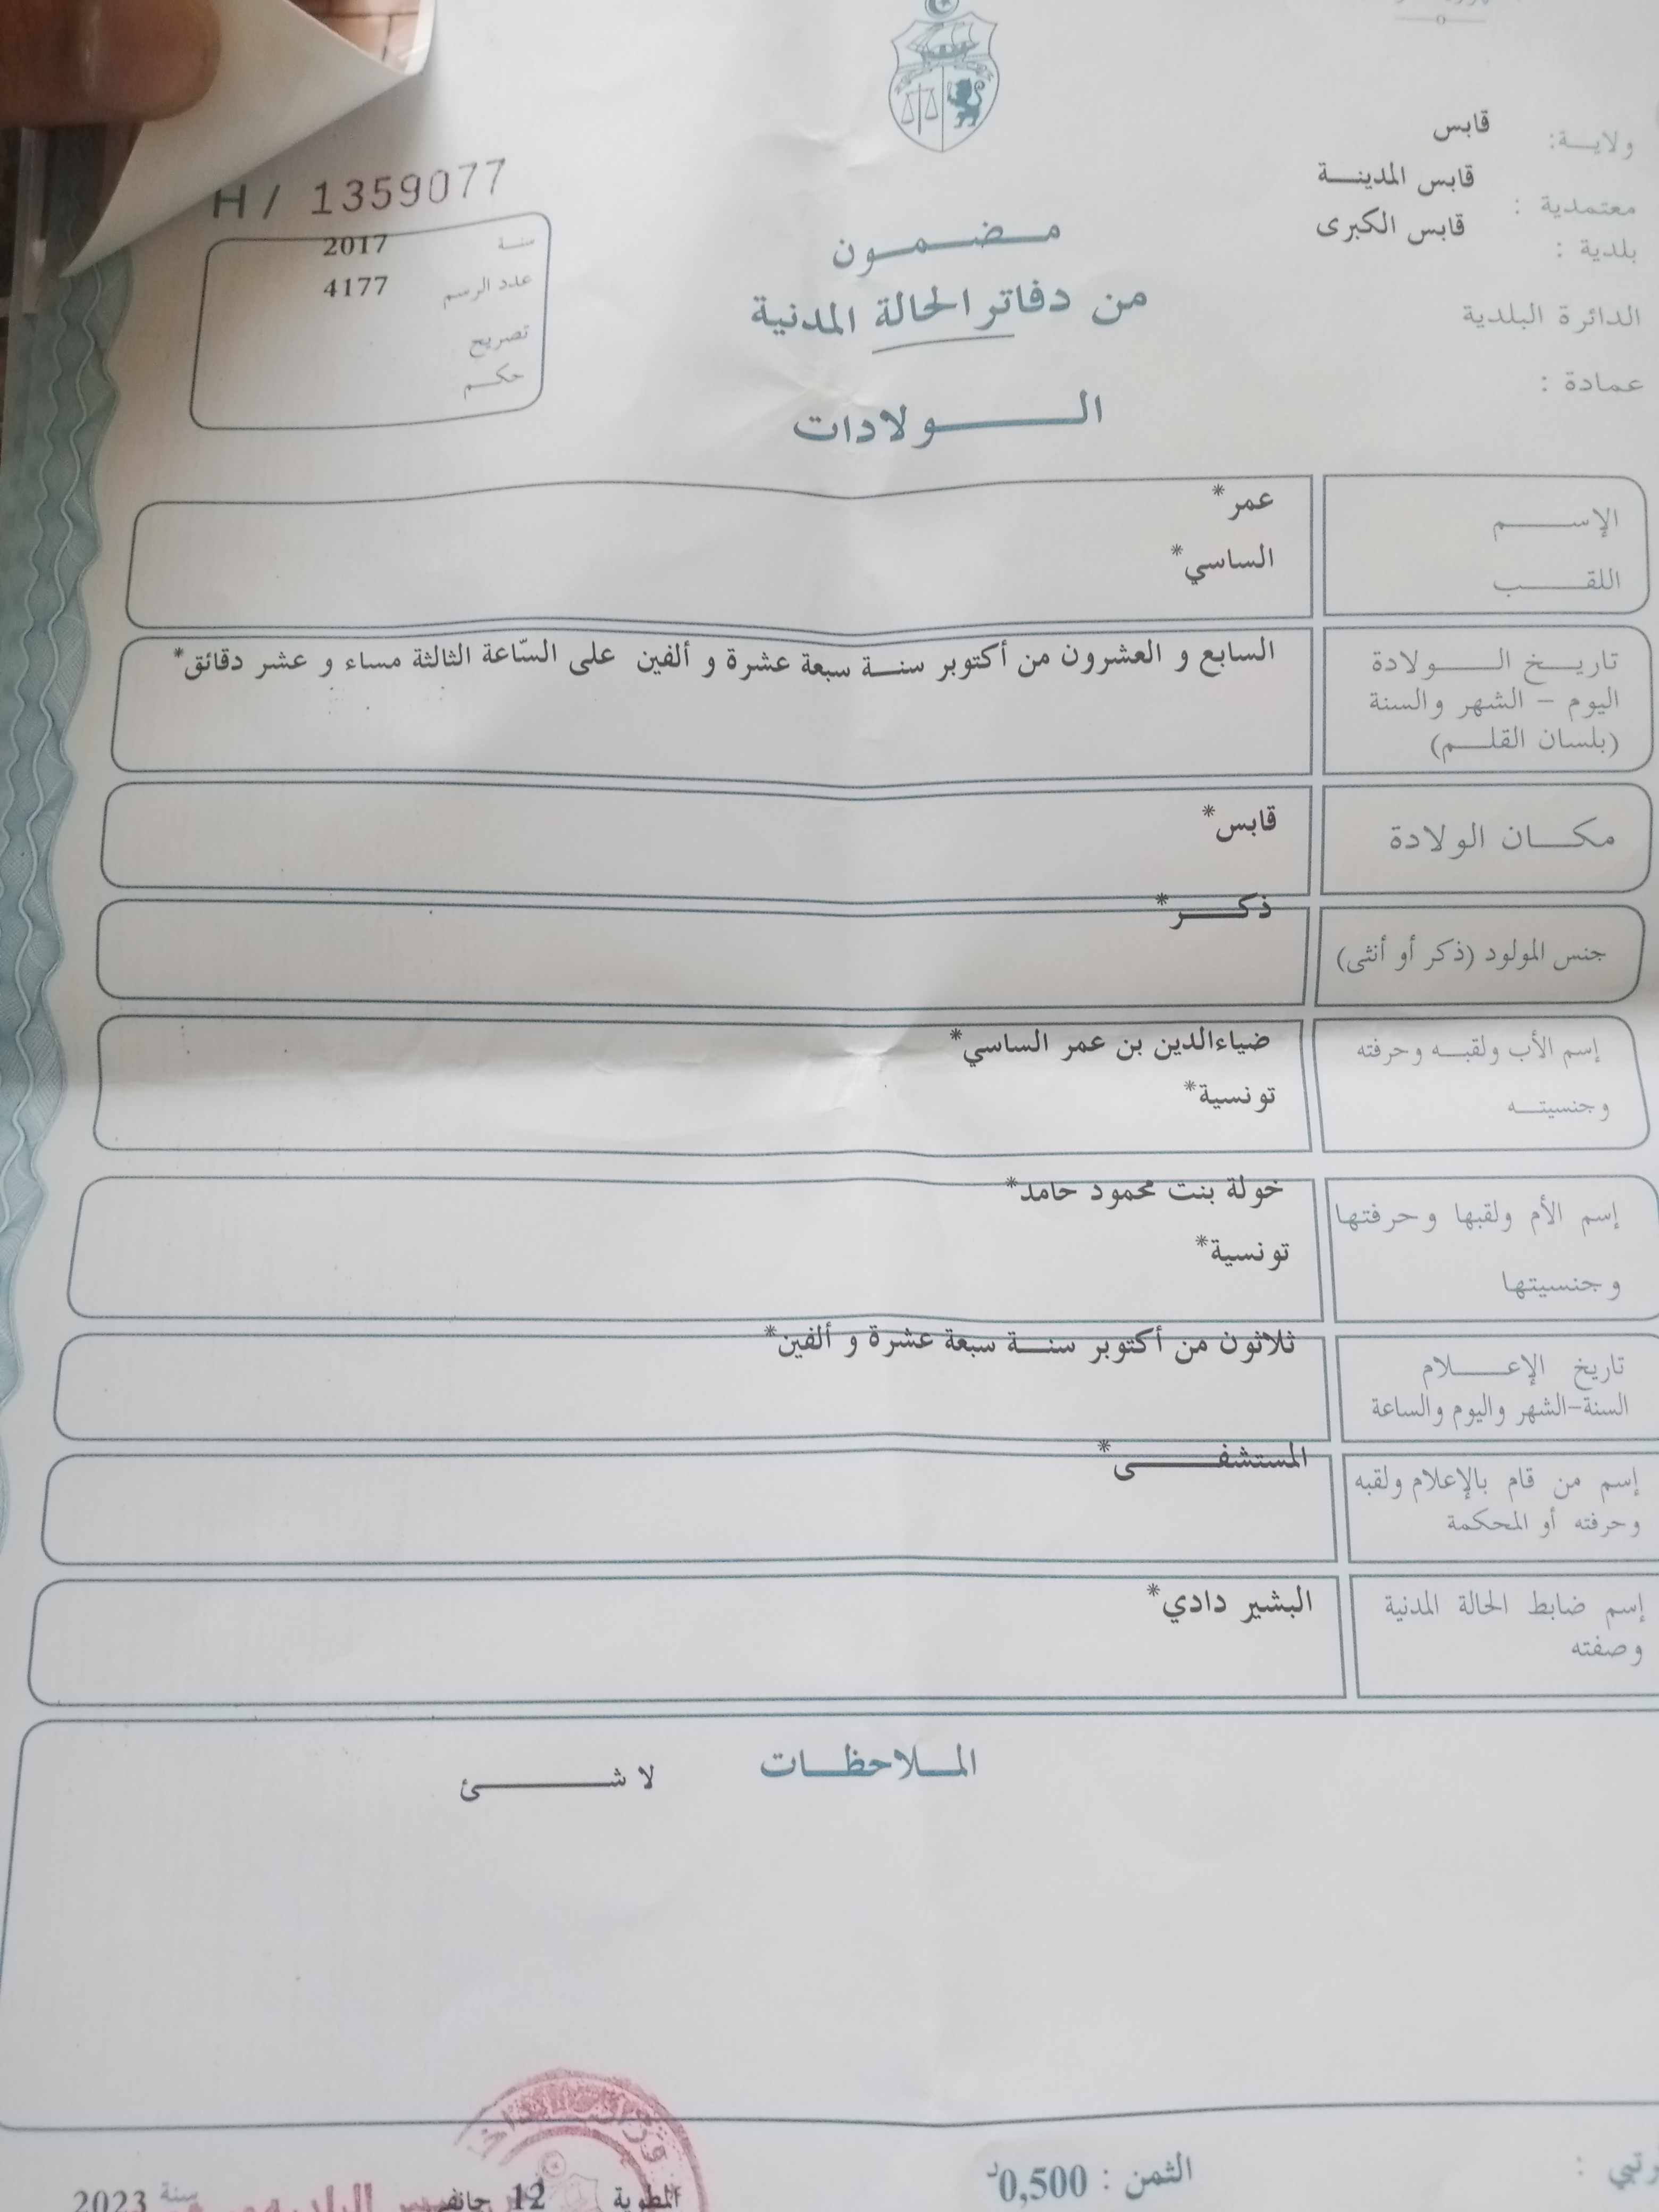 ولاية: قابس
معتمدية : قابس المدينة
بلدية : قابس الكبرى
الدائرة البلدية
عمادة :
H / 1359077
سنة 2017
عدد الرسم 4177
تصريح
حكم
مضمون
من دفاتر الحالة المدنية
الولادات
الإسم عمر*
اللقب الساسي*
تاريخ الولادة
اليوم – الشهر والسنة
(بلسان القلم)
السابع و العشرون من أكتوبر سنة سبعة عشرة و ألفين على السّاعة الثالثة مساء و عشر دقائق*
مكان الولادة قابس*
جنس المولود (ذكر أو أنثى) ذكر*
إسم الأب ولقبه وحرفته ضياءالدين بن عمر الساسي*
وجنسيته تونسية*
إسم الأم ولقبها وحرفتها خولة بنت محمود حامد*
وجنسيتها تونسية*
تاريخ الإعلام
السنة-الشهر واليوم والساعة
ثلاثون من أكتوبر سنة سبعة عشرة و ألفين*
إسم من قام بالإعلام ولقبه
وحرفته أو المحكمة
المستشفى*
إسم ضابط الحالة المدنية
وصفته
البشير دادي*
الملاحظات
لا شئ
الثمن : 0,500د
المطوية 12 جانفي سنة 2023